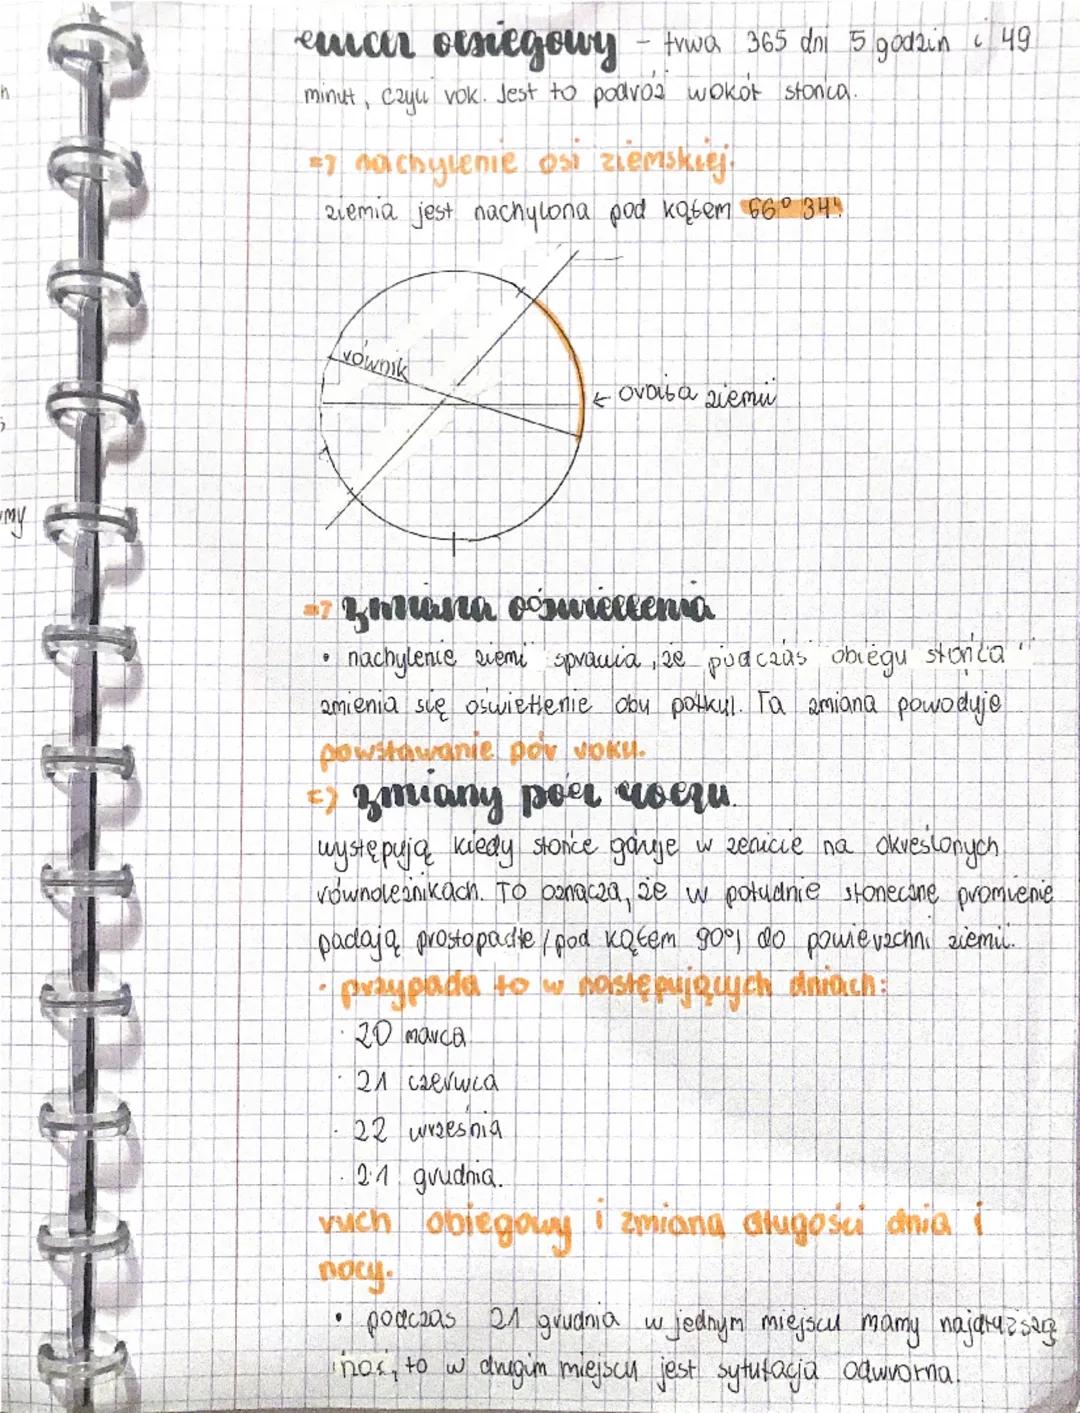 ruch obiegowy - trwa 365 dni 5 godzin i 49
minut, czyli rok. Jest to podróż wokół słońca.
=> nachylenie osi ziemskiej.
ziemia jest nachylona pod kątem 66° 34'.
równik
← orbita ziemii
=> zmiana oświetlenia
• nachylenie ziemi sprawia, że podczas obiegu słońca
zmienia się oświetlenie obu półkul. Ta zmiana powoduje
powstawanie pór roku.
=> zmiany pór roku.
występują kiedy słońce góruje w zenicie na określonych
równoleżnikach. To oznacza, że w południe słoneczne promienie
padają prostopadle /pod kątem 90°/ do powierzchni ziemii.
• przypada to w następujących dniach:
· 20 marca
· 21 czerwca
· 22 września
· 21 grudnia.
ruch obiegowy i zmiana długości dnia i
nocy.
• podczas 21 grudnia w jednym miejscu mamy najdłuższą
noc, to w drugim miejscu jest sytutacja odwrotna.
my